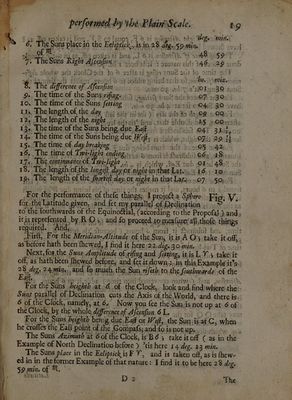 performed by the Plain Scale. 19
deg. min.
6. The Suns place in the Ecliptick, is in 28 deg. 59 min.
of ♏ 48 59
7. The Suns Right Ascension 46 29
ho. min.
8. The difference of Ascension 01 30
9. The time of the Suns rising 07 30
10. The time of the Suns setting 04 30
11. The length of the day 09 00
12. The length of the night 15 00
13. The time of the Suns being due East 04 31
14. The time of the Suns being due West 07 29
15. The time of day breaking 05 42
16. The time of Twi-light ending 06 18
17. The continuance of Twi-light 01 48
18. The length of the longest day or night in that Lat. 16 10
19. The length of the shortest day or night in that Lat. 07 50
For the performance of these things, I project a Sphere
for the Latitude given, and set my parallel of Declination Fig. V.
to the southwards of the Equinoctial, (according to the Proposal) and
it is represented by R O, and so proceed to measure all those things
required. And,
First, For the Meridian-Altitude of the Sun, it is Æ O; take it off,
as before hath been shewed, I find it here 22 deg. 30 min.
Next, for the Suns Amplitude of rising and setting, it is L Y; take it
off, as hath been shewed before, and set it down; in this Example it's
28 deg. 24 min. and so much the Sun riseth to the southwards of the
East.
For the Suns heighth at 6 of the Clock, look and find where the
Suns parallel of Declination cuts the Axis of the World, and there is
6 of the Clock, namely, at 6. Now you see the Sun is not up at 6 of
the Clock, by the whole difference of Ascension 6 L.
For the Suns heighth being due East or West, the Sun is at G, when
he crosses the East point of the Compass; and so is not up.
The Suns Azimuth at 6 of the Clock, is B 6; take it off (as in the
Example of North Declination before) 'tis here 14 deg. 13 min.
The Suns place in the Ecliptick is F Y, and is taken off, as is shew-
ed in in the former Example of that nature: I find it to be here 28 deg.
59 min. of ♏.
D 2 The